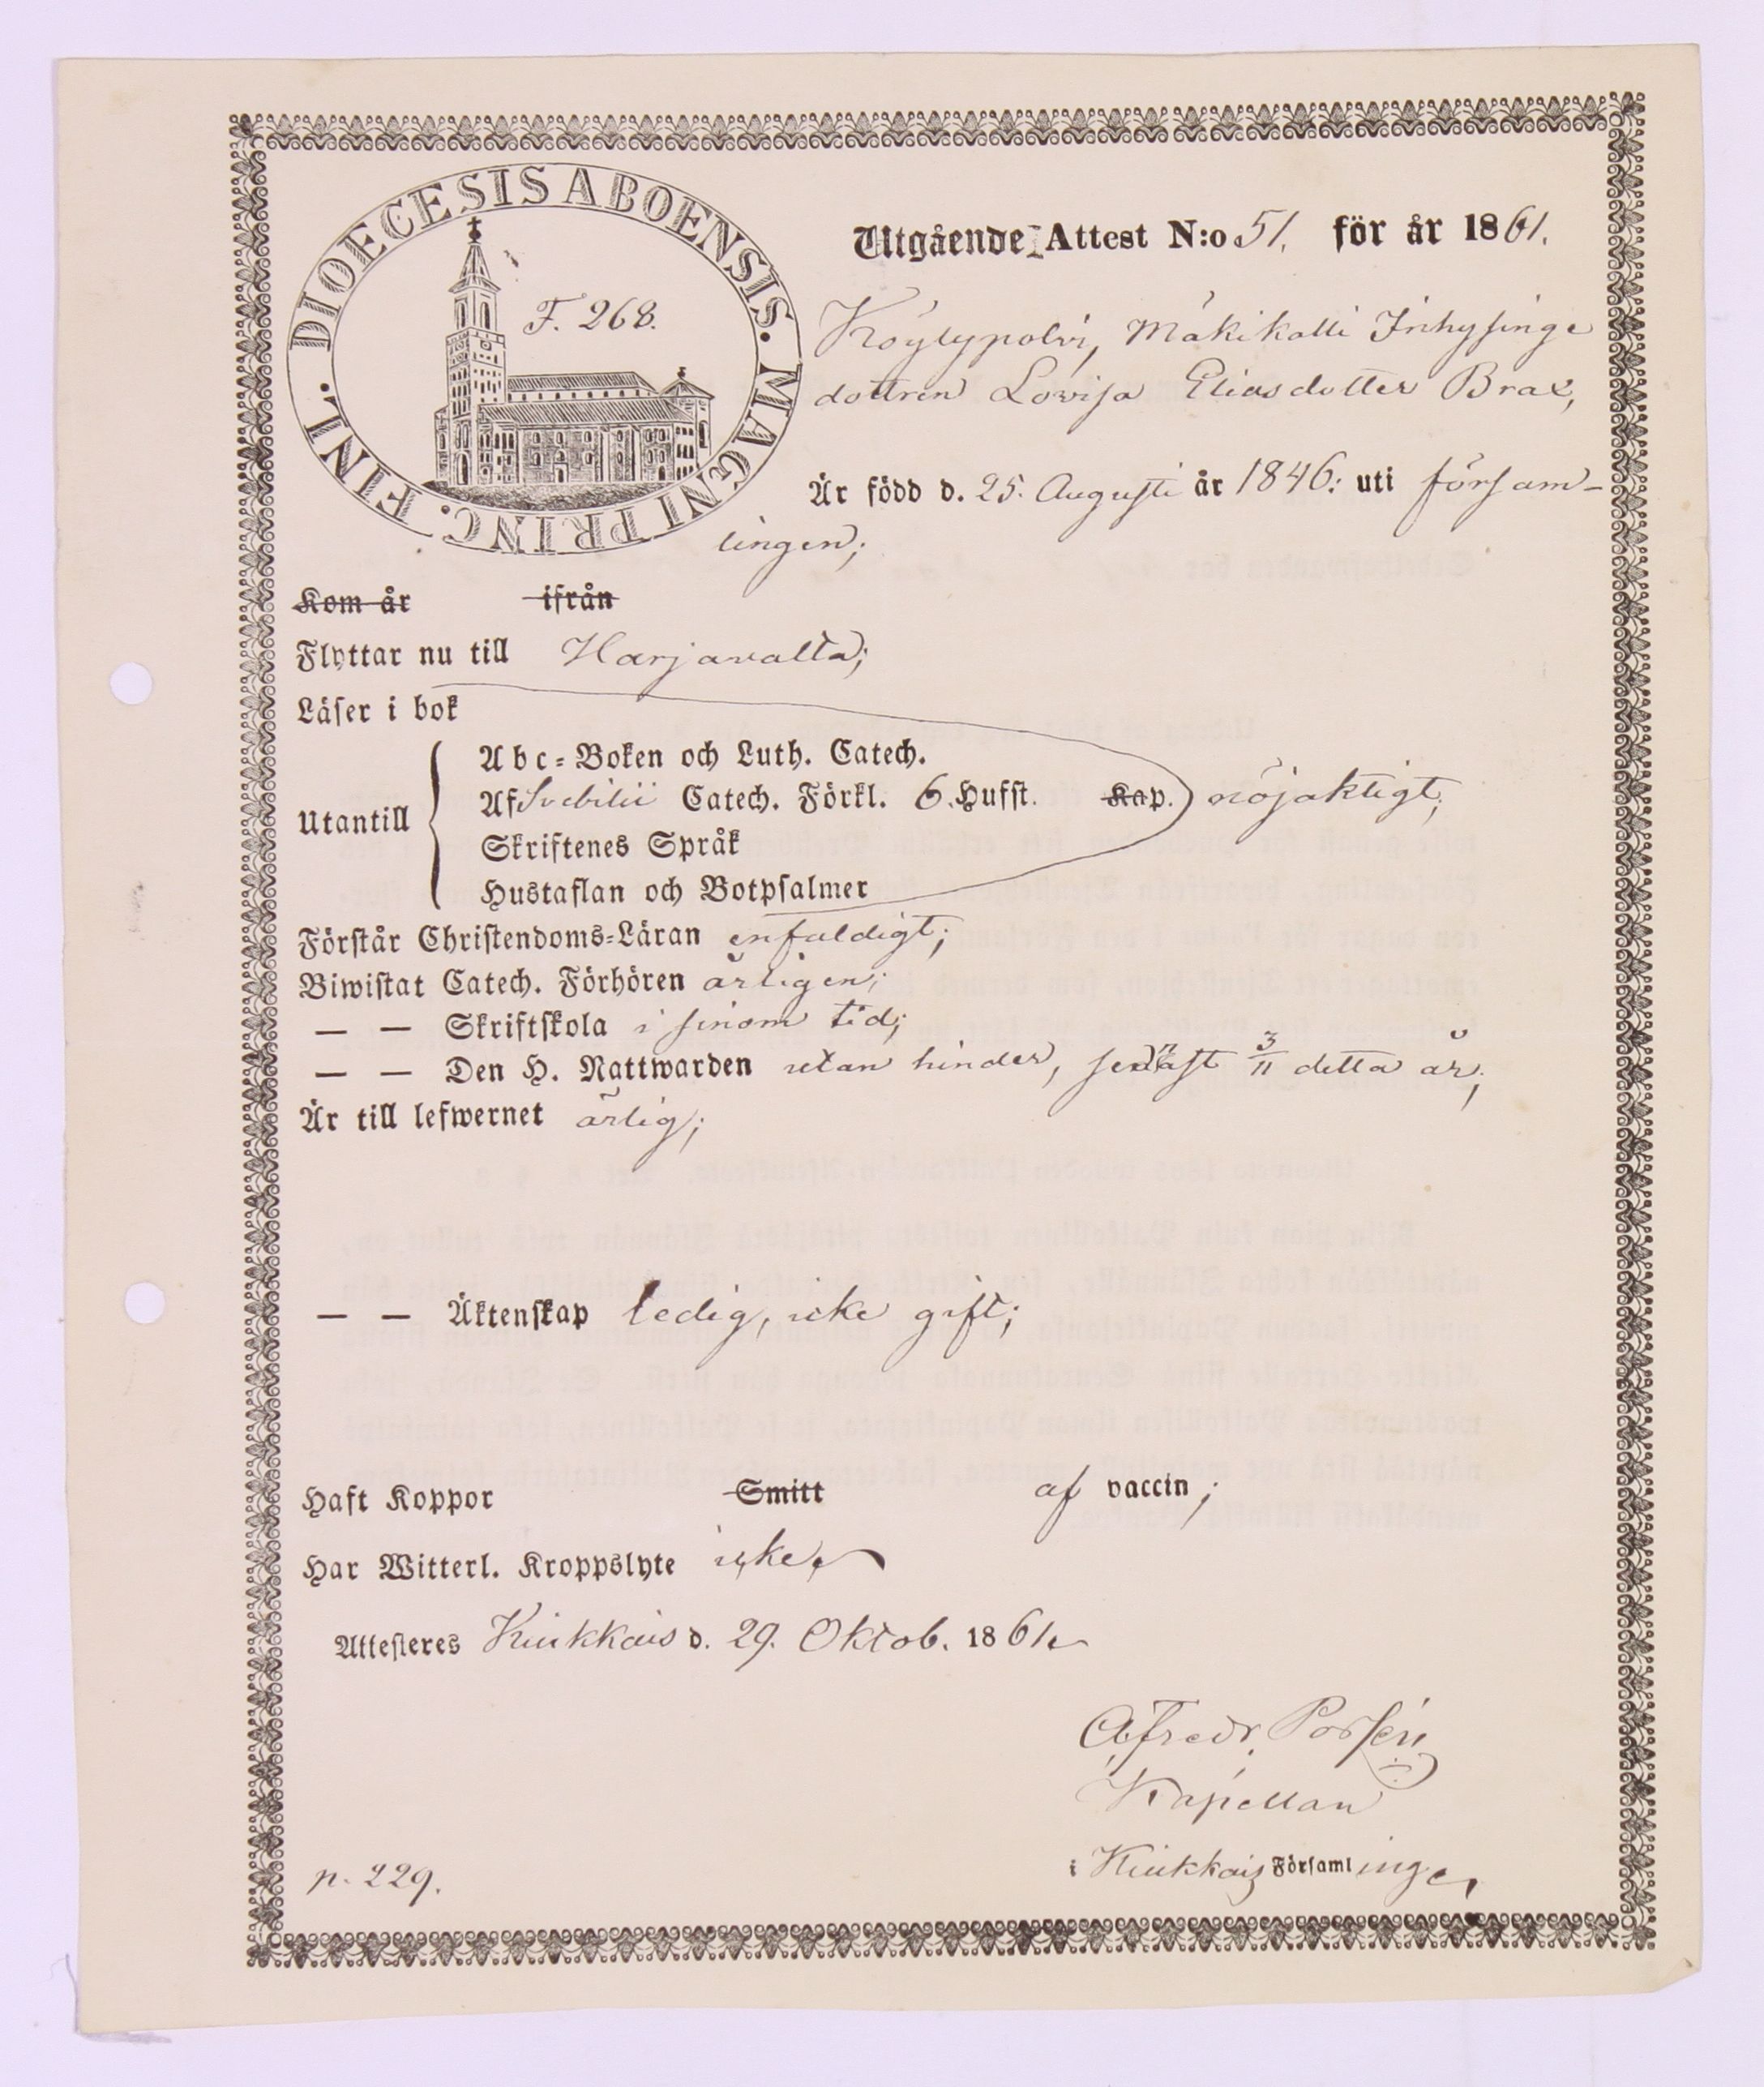 DIOECESIS ABOENSIS. MAGNI PRINC. FINL.
F. 268.
Utgående Attest N:o 51. för år 1861.
Köylypolvi, Mäkikalli Inhysinge
dottren Lovisa Eliasdotter Brax,
Är född d. 25. Augusti år 1846: uti försam-
lingen;
Kom år ifrån
Flyttar nu till Harjavalta;
Läser i bok
Utantill
Abc-Boken och Luth. Catech.
Af Svebilii Catech. Förkl. 6. Hufst. Kap. nöjaktigt;
Skriftenes Språk
Hustaflan och Botpsalmer
Förstår Christendoms-Läran enfaldigt;
Biwistat Catech. Förhören årligen;
— — Skriftskola i sinom tid;
— — Den H. Nattwarden utan hinder, senast 3/11 detta år;
Är till lefwernet ärlig;
— — Äktenskap ledig, icke gift;
Haft Koppor Smitt af vaccin;
Har Witterl. Kroppslyte icke
Attesteres Kiukkais d. 29. Oktob. 1861
Alfredr. Porsén
Kapellan
i Kiukkais Församlinge
p. 229.